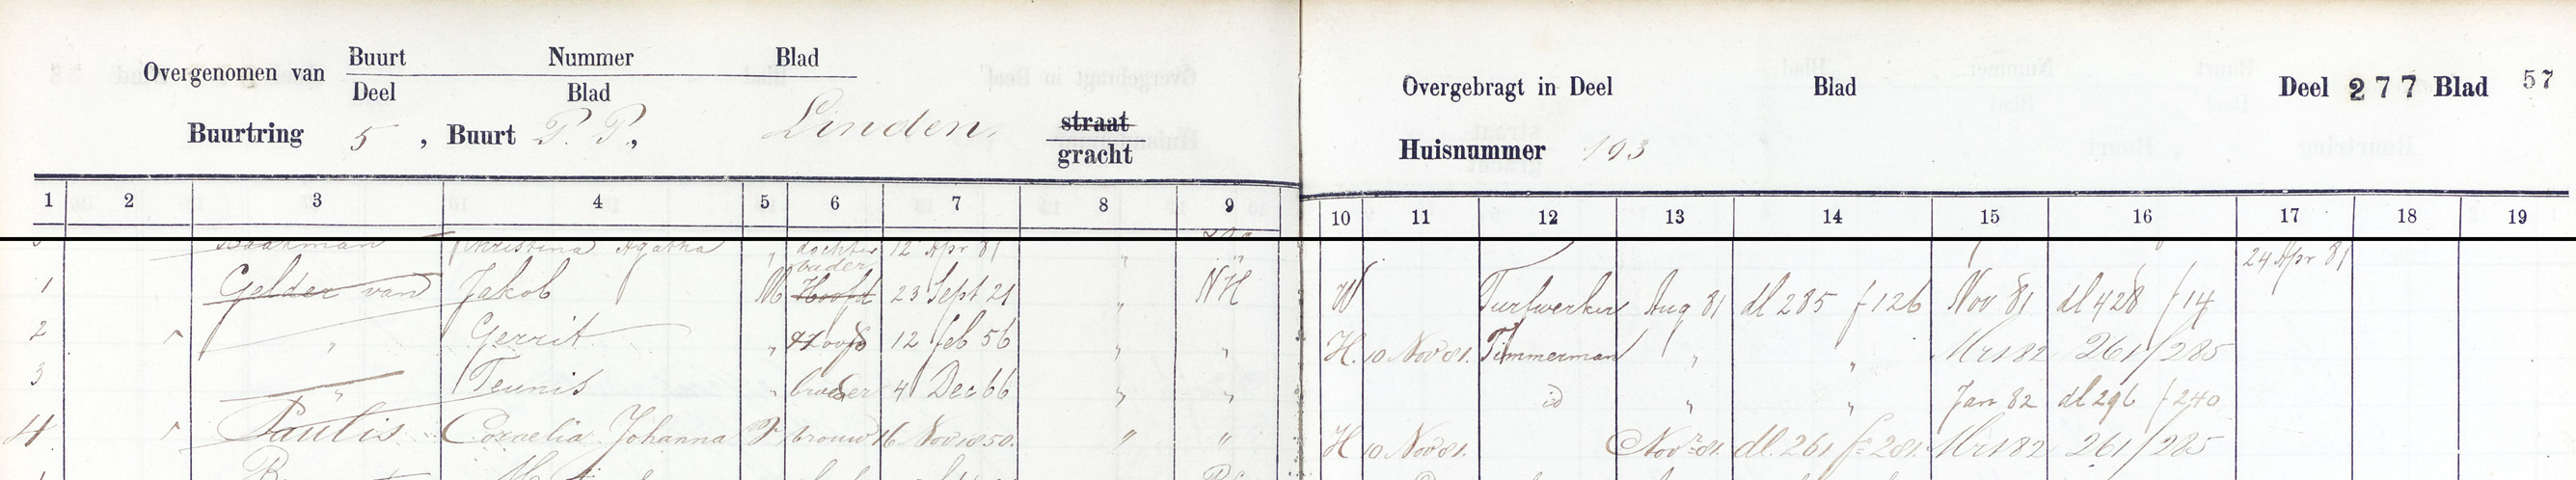 Overgenomen van Buurt Nummer Blad
Deel Blad
Buurtring 5, Buurt P.P., Linden straat
gracht
Overgebragt in Deel Blad Deel 277 Blad 57
Huisnummer 193
1 2 3 4 5 6 7 8 9 10 11 12 13 14 15 16 17 18 19
Christina Agatha " dochter 12 Apr 81 " " 24 Apr 81
vader
1 Gelder van Jakob M Hoofd 23 Sept 21 " NH W Turfwerker Aug 81 dl 285 f 126 Nov 81 dl 428 f 14
2 " Gerrit " Hoofd 12 feb 56 " " H. 10 Nov 81. Timmerman " " Mrt 82 261/285
3 " Teunis " broeder 4 Dec 66 " " id " " Jan 82 dl 296 f 240
4 Paulis Cornelia Johanna V vrouw 16 Nov 1850. " " H 10 Nov 81. Nov 81. dl. 261 f 281. Mrt 82 261/285